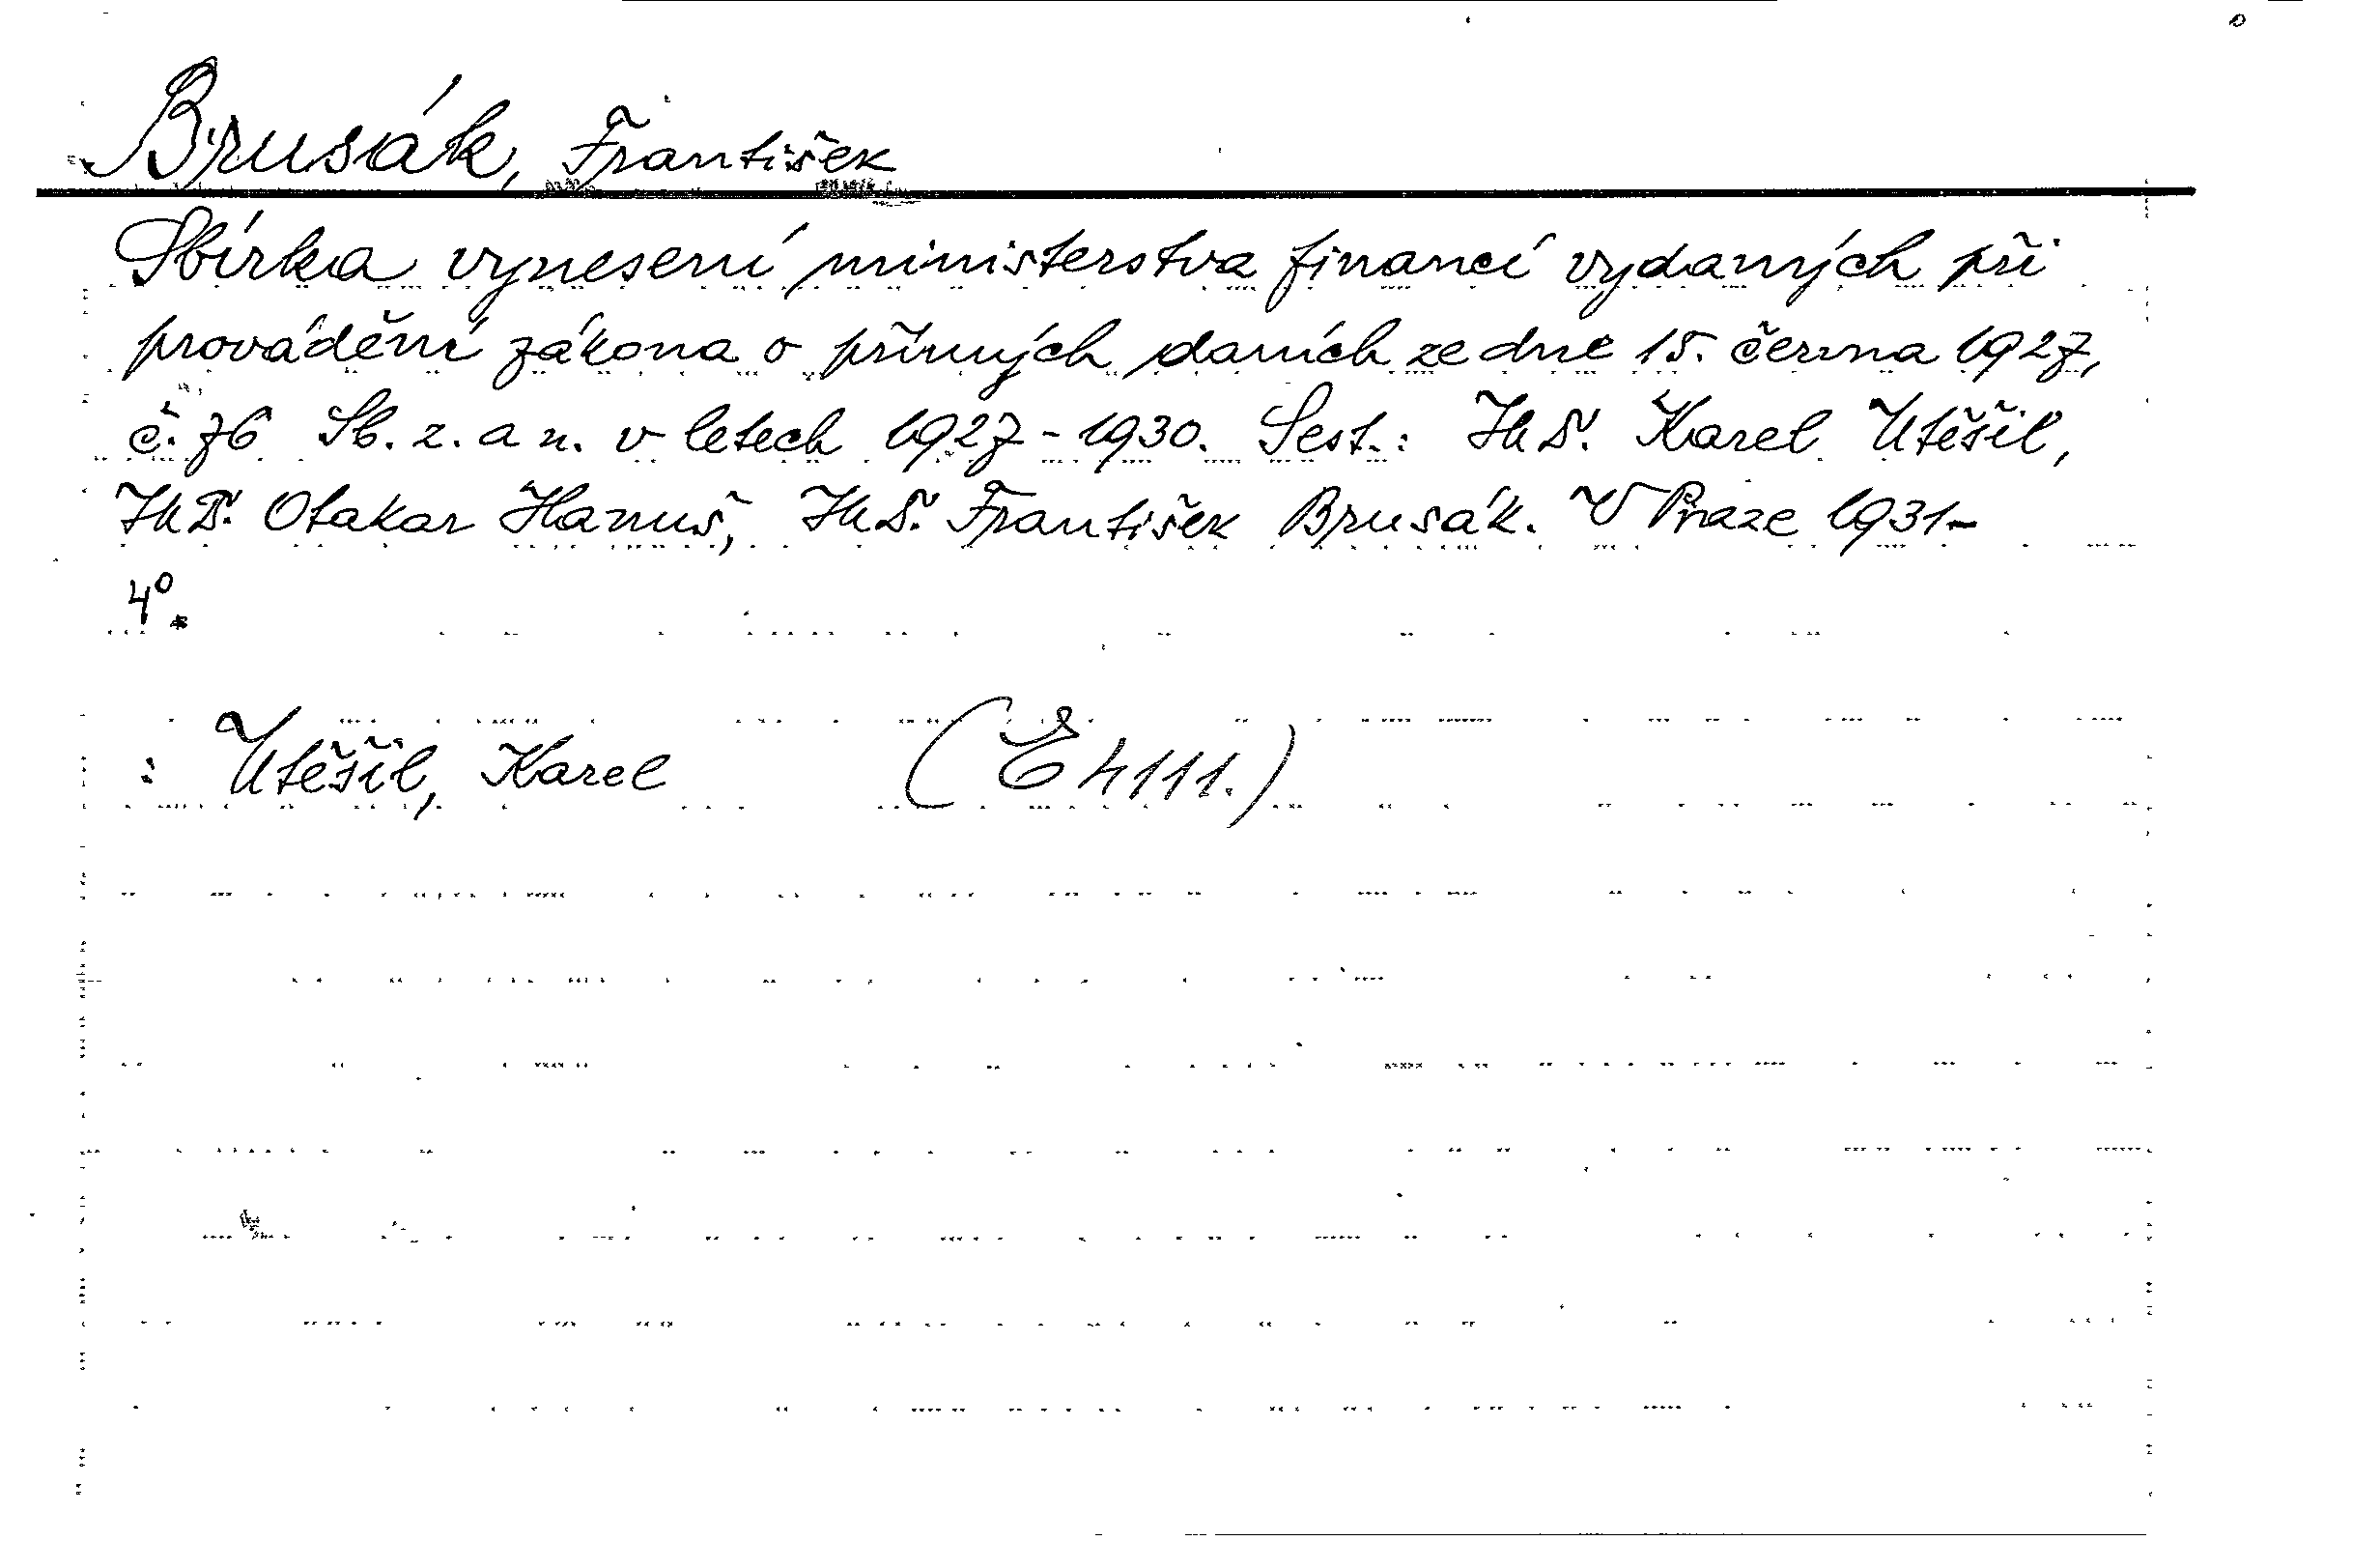 Brusák, František
Sbírka vynesení ministerstva financí vydaných při
provádění zákona o přímých daních ze dne 15. června 1927,
č. 76 Sb. z. a n. v letech 1927-1930. Sest.: JUDr. Karel Utěšil,
JUDr. Otakar Hanuš, JUDr. František Brusák. V Praze 1931-
4°.
: Utěšil, Karel (E h 111.)